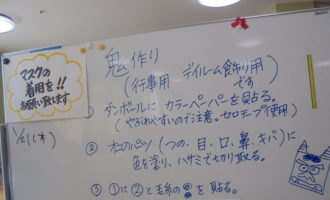 マスクの
着用を!!
お願い致します
1/21(木)
鬼作り
(行事用 デイルーム飾り用
です
① ダンボールに カラーペーパーを貼る。
(やぶれやすいので注意。セロテープ使用)
② オニのパーツ(つの、目、口、鼻、キバ)に
色を塗り、ハサミでセリ取る。
③ ①に②と毛糸の を貼る。